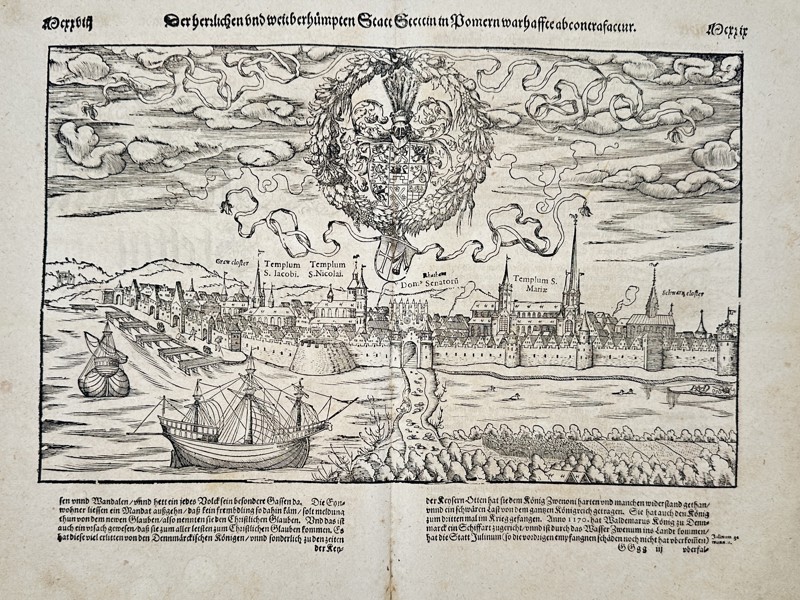 Mcxxviij
Der herrlichen vnd weitberhümpten Statt Stettin in Pomern warhaffte abcontrafactur.
Mcxxix
Graw closter
Templum
S. Iacobi.
Templum
S. Nicolai.
Rhathaus
Dom⁹ Senatorũ
Templum S.
Mariæ
Schwartz closter
sen vnnd Wandalen / vnnd hett ein jedes Volck sein besondere Gassen da. Die Eyn⸗
wohner liessen ein Mandat außgehn / daß kein frembdling so dahin käm / solt meldung
thun von dem newen Glauben / also nennten sie den Christlichen Glauben. Vnd das ist
auch ein vrsach gewesen / daß sie zum aller letsten zum Christlichen Glauben kommen. Es
hat diese viel erlitten von den Dennmärckischen Königen / vnnd sonderlich zu den zeiten
der Key⸗
der Keysern Otten hat sie dem König Zwenoni harten vnd manchen widerstand gethan /
vnnd ein schwären last von dem gantzen Königreich getragen. Sie hat auch den König
zum dritten mal im Krieg gefangen. Anno 1170. hat Waldemarus König zu Denn⸗
marck ein Schiffart zugericht / vnnd ist durch das Wasser Zwenum ins Landt kommen /
hat die Statt Julinum (so die vordrigen empfangnen schäden noch nicht hat vberkommen)
Julinum ge
GGgg iij
vberfal⸗